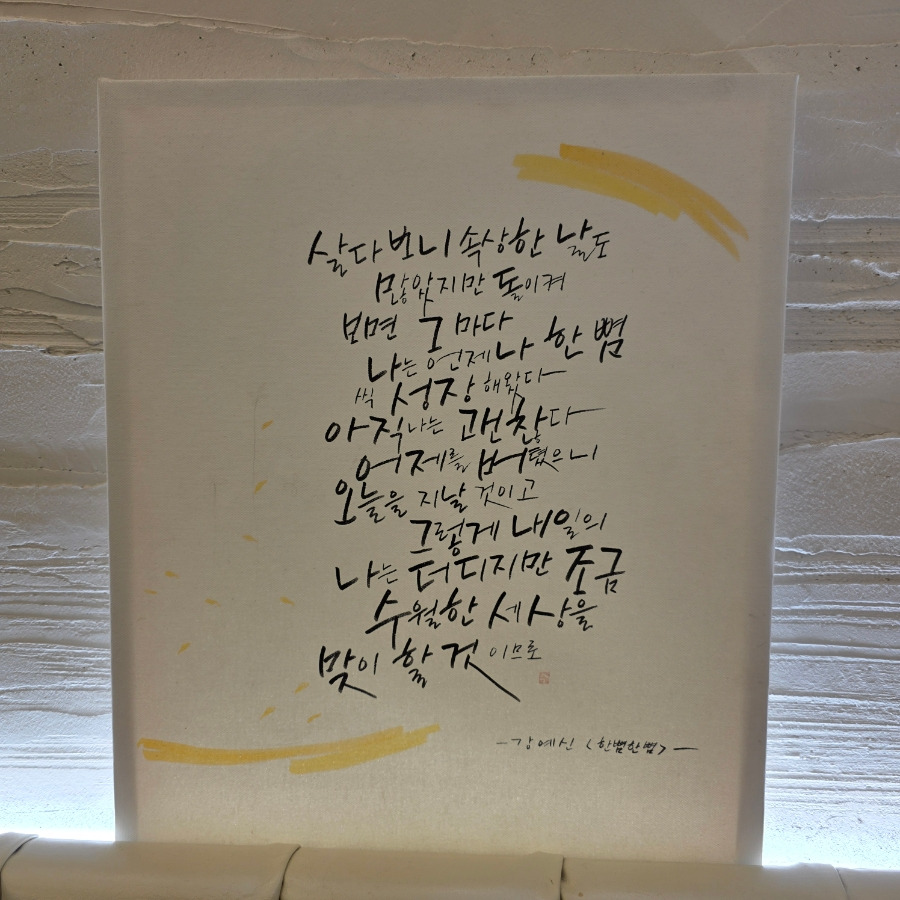 살다보니 속상한 날도
많았지만 돌이켜
보면 그 마다
나는 언제나 한 뼘
씩 성장해왔다
아직 나는 괜찮다
어제를 버텼으니
오늘을 지날 것이고
그렇게 내일의
나는 더디지만 조금
수월한 세상을
맞이 할 것 이므로
-강예신 <한뼘한뼘>-